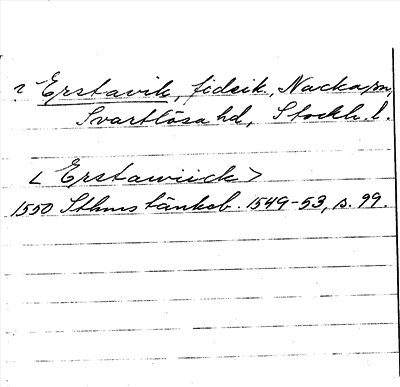 2 Erstavik, fideik, Nacka sn,
Svartlösa hd, Stockh. l.
< Erstawiick >
1550 Sthms tänkeb. 1549-53, s. 99.